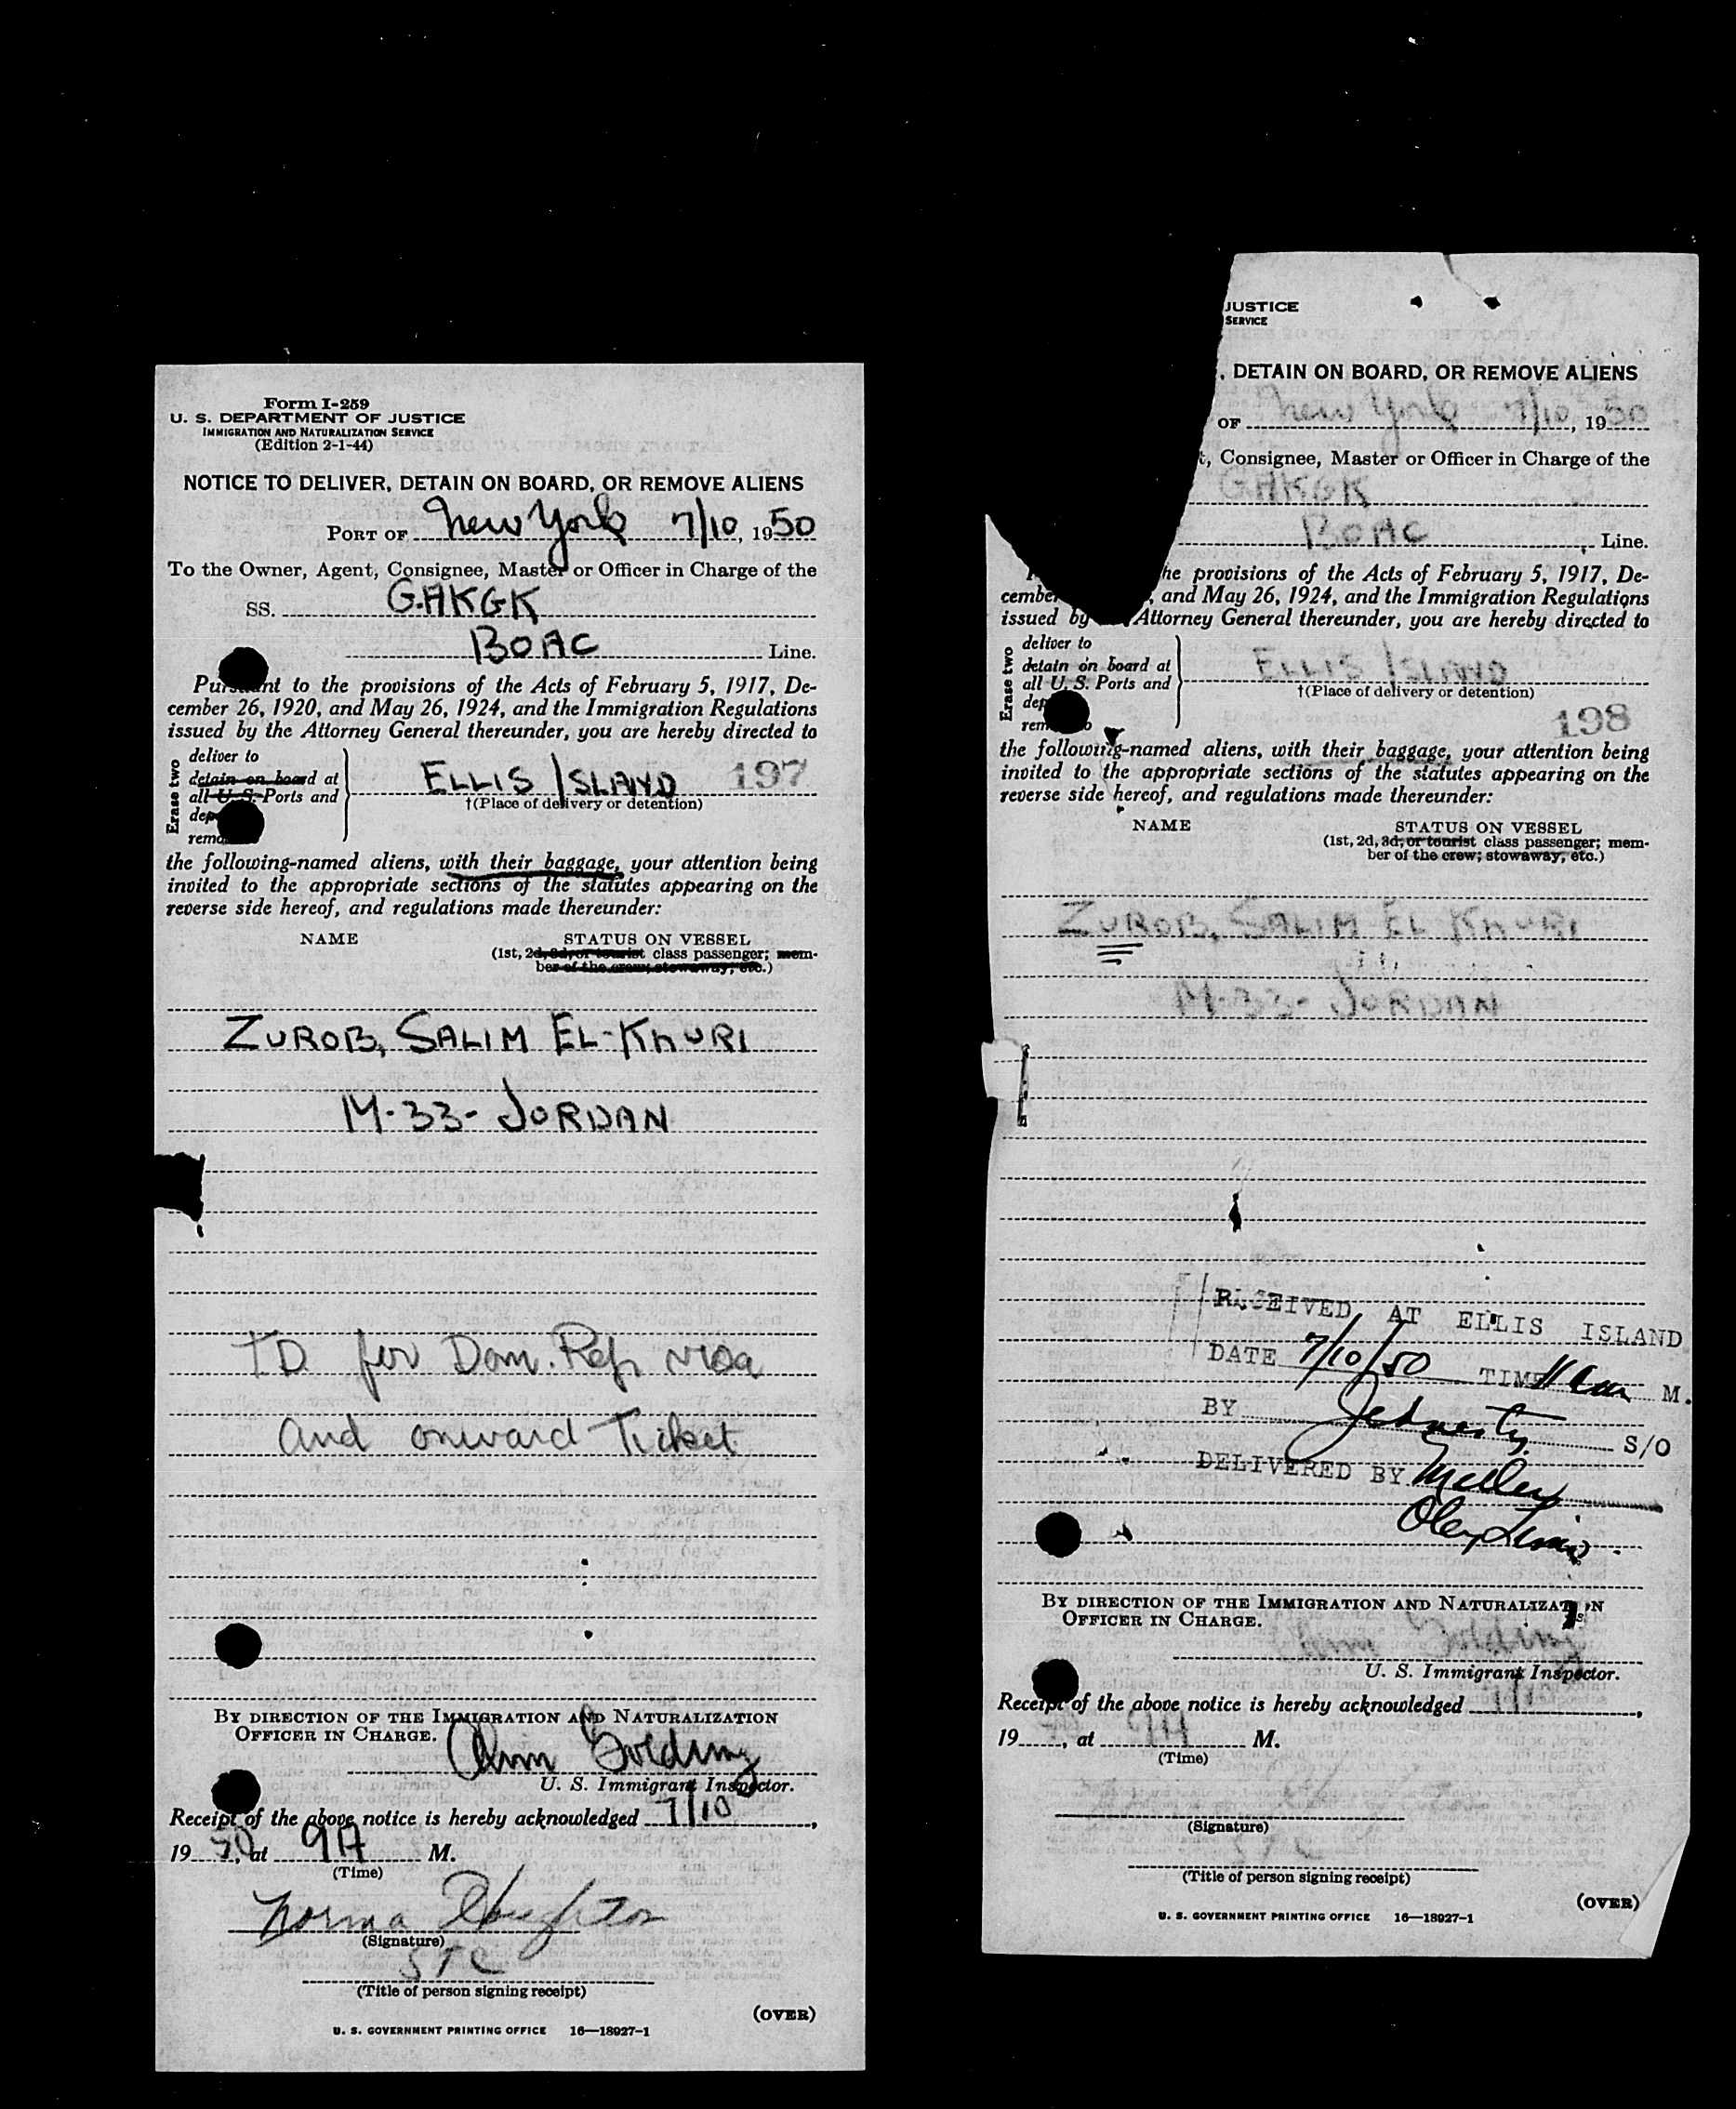 Form I-259
U. S. DEPARTMENT OF JUSTICE
IMMIGRATION AND NATURALIZATION SERVICE
(Edition 2-1-44)
NOTICE TO DELIVER, DETAIN ON BOARD, OR REMOVE ALIENS
PORT OF New York 7/10, 1950
To the Owner, Agent, Consignee, Master or Officer in Charge of the
SS. G.AKGK
BOAC Line.
Pursuant to the provisions of the Acts of February 5, 1917, De-
cember 26, 1920, and May 26, 1924, and the Immigration Regulations
issued by the Attorney General thereunder, you are hereby directed to
Erase two
deliver to
detain on board at
all U. S. Ports and
dep
remo
ELLIS ISLAND 197
†(Place of delivery or detention)
the following-named aliens, with their baggage, your attention being
invited to the appropriate sections of the statutes appearing on the
reverse side hereof, and regulations made thereunder:
NAME STATUS ON VESSEL
(1st, 2d, 3d, or tourist class passenger; mem-
ber of the crew; stowaway, etc.)
ZUROB, SALIM EL-KHURI
M-33- JORDAN
TD for Dom. Rep visa
and onward Ticket
BY DIRECTION OF THE IMMIGRATION AND NATURALIZATION
OFFICER IN CHARGE.
Golding
U. S. Immigrant Inspector.
Receipt of the above notice is hereby acknowledged 7/10,
1950, at 9A M.
(Time)
Norma Houghton
(Signature)
STC
(Title of person signing receipt)
(OVER)
U. S. GOVERNMENT PRINTING OFFICE 16—18927-1
JUSTICE
SERVICE
, DETAIN ON BOARD, OR REMOVE ALIENS
OF New York 7/10, 1950
t, Consignee, Master or Officer in Charge of the
GAKGK
BOAC Line.
he provisions of the Acts of February 5, 1917, De-
cember , and May 26, 1924, and the Immigration Regulations
issued by Attorney General thereunder, you are hereby directed to
Erase two
deliver to
detain on board at
all U. S. Ports and
dep
rem
ELLIS ISLAND
†(Place of delivery or detention)
198
the following-named aliens, with their baggage, your attention being
invited to the appropriate sections of the statutes appearing on the
reverse side hereof, and regulations made thereunder:
NAME STATUS ON VESSEL
(1st, 2d, 3d, or tourist class passenger; mem-
ber of the crew; stowaway, etc.)
ZUROB, SALIM EL KHURI
M-33- JORDAN
RECEIVED AT ELLIS ISLAND
DATE 7/10/50 TIME 11 am M.
BY S/O
DELIVERED BY
BY DIRECTION OF THE IMMIGRATION AND NATURALIZATION
OFFICER IN CHARGE.
Golding
U. S. Immigrant Inspector.
Receipt of the above notice is hereby acknowledged 7/10,
19 , at 9A M.
(Time)
(Signature)
STC
(Title of person signing receipt)
(OVER)
U. S. GOVERNMENT PRINTING OFFICE 16—18927-1